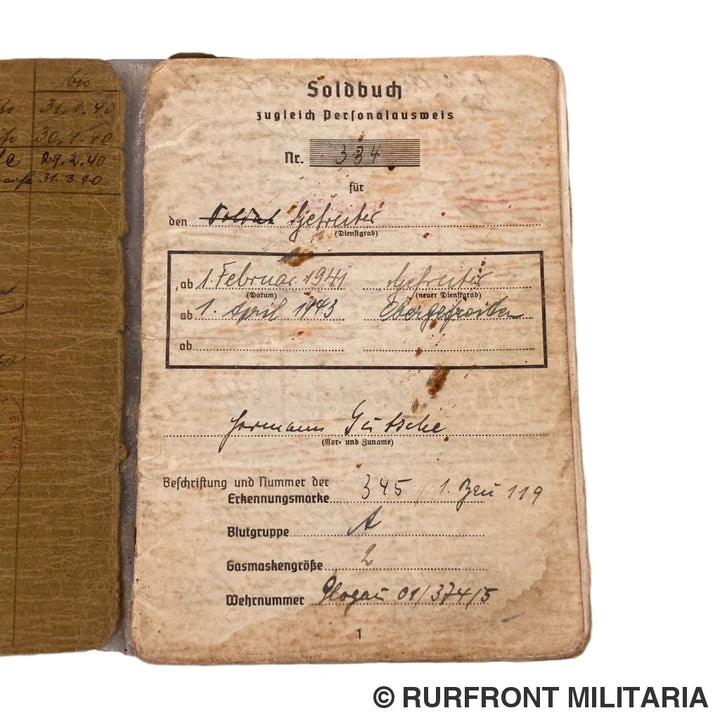 bis
31.1.40
30.1.40
29.2.40
31.3.40
Soldbuch
zugleich Personalausweis
Nr. 334
für
den Soldat Gefreiter
(Dienstgrad)
ab 1. Februar 1941 Gefreiter
(Datum) (neuer Dienstgrad)
ab 1. April 1943 Obergefreiter
ab
Hermann Gutsche
(Vor- und Zuname)
Beschriftung und Nummer der
Erkennungsmarke 345 / 1. Beu 119
Blutgruppe A
Gasmaskengröße 2
Wehrnummer Glogau 01/374/5
1
© RURFRONT MILITARIA